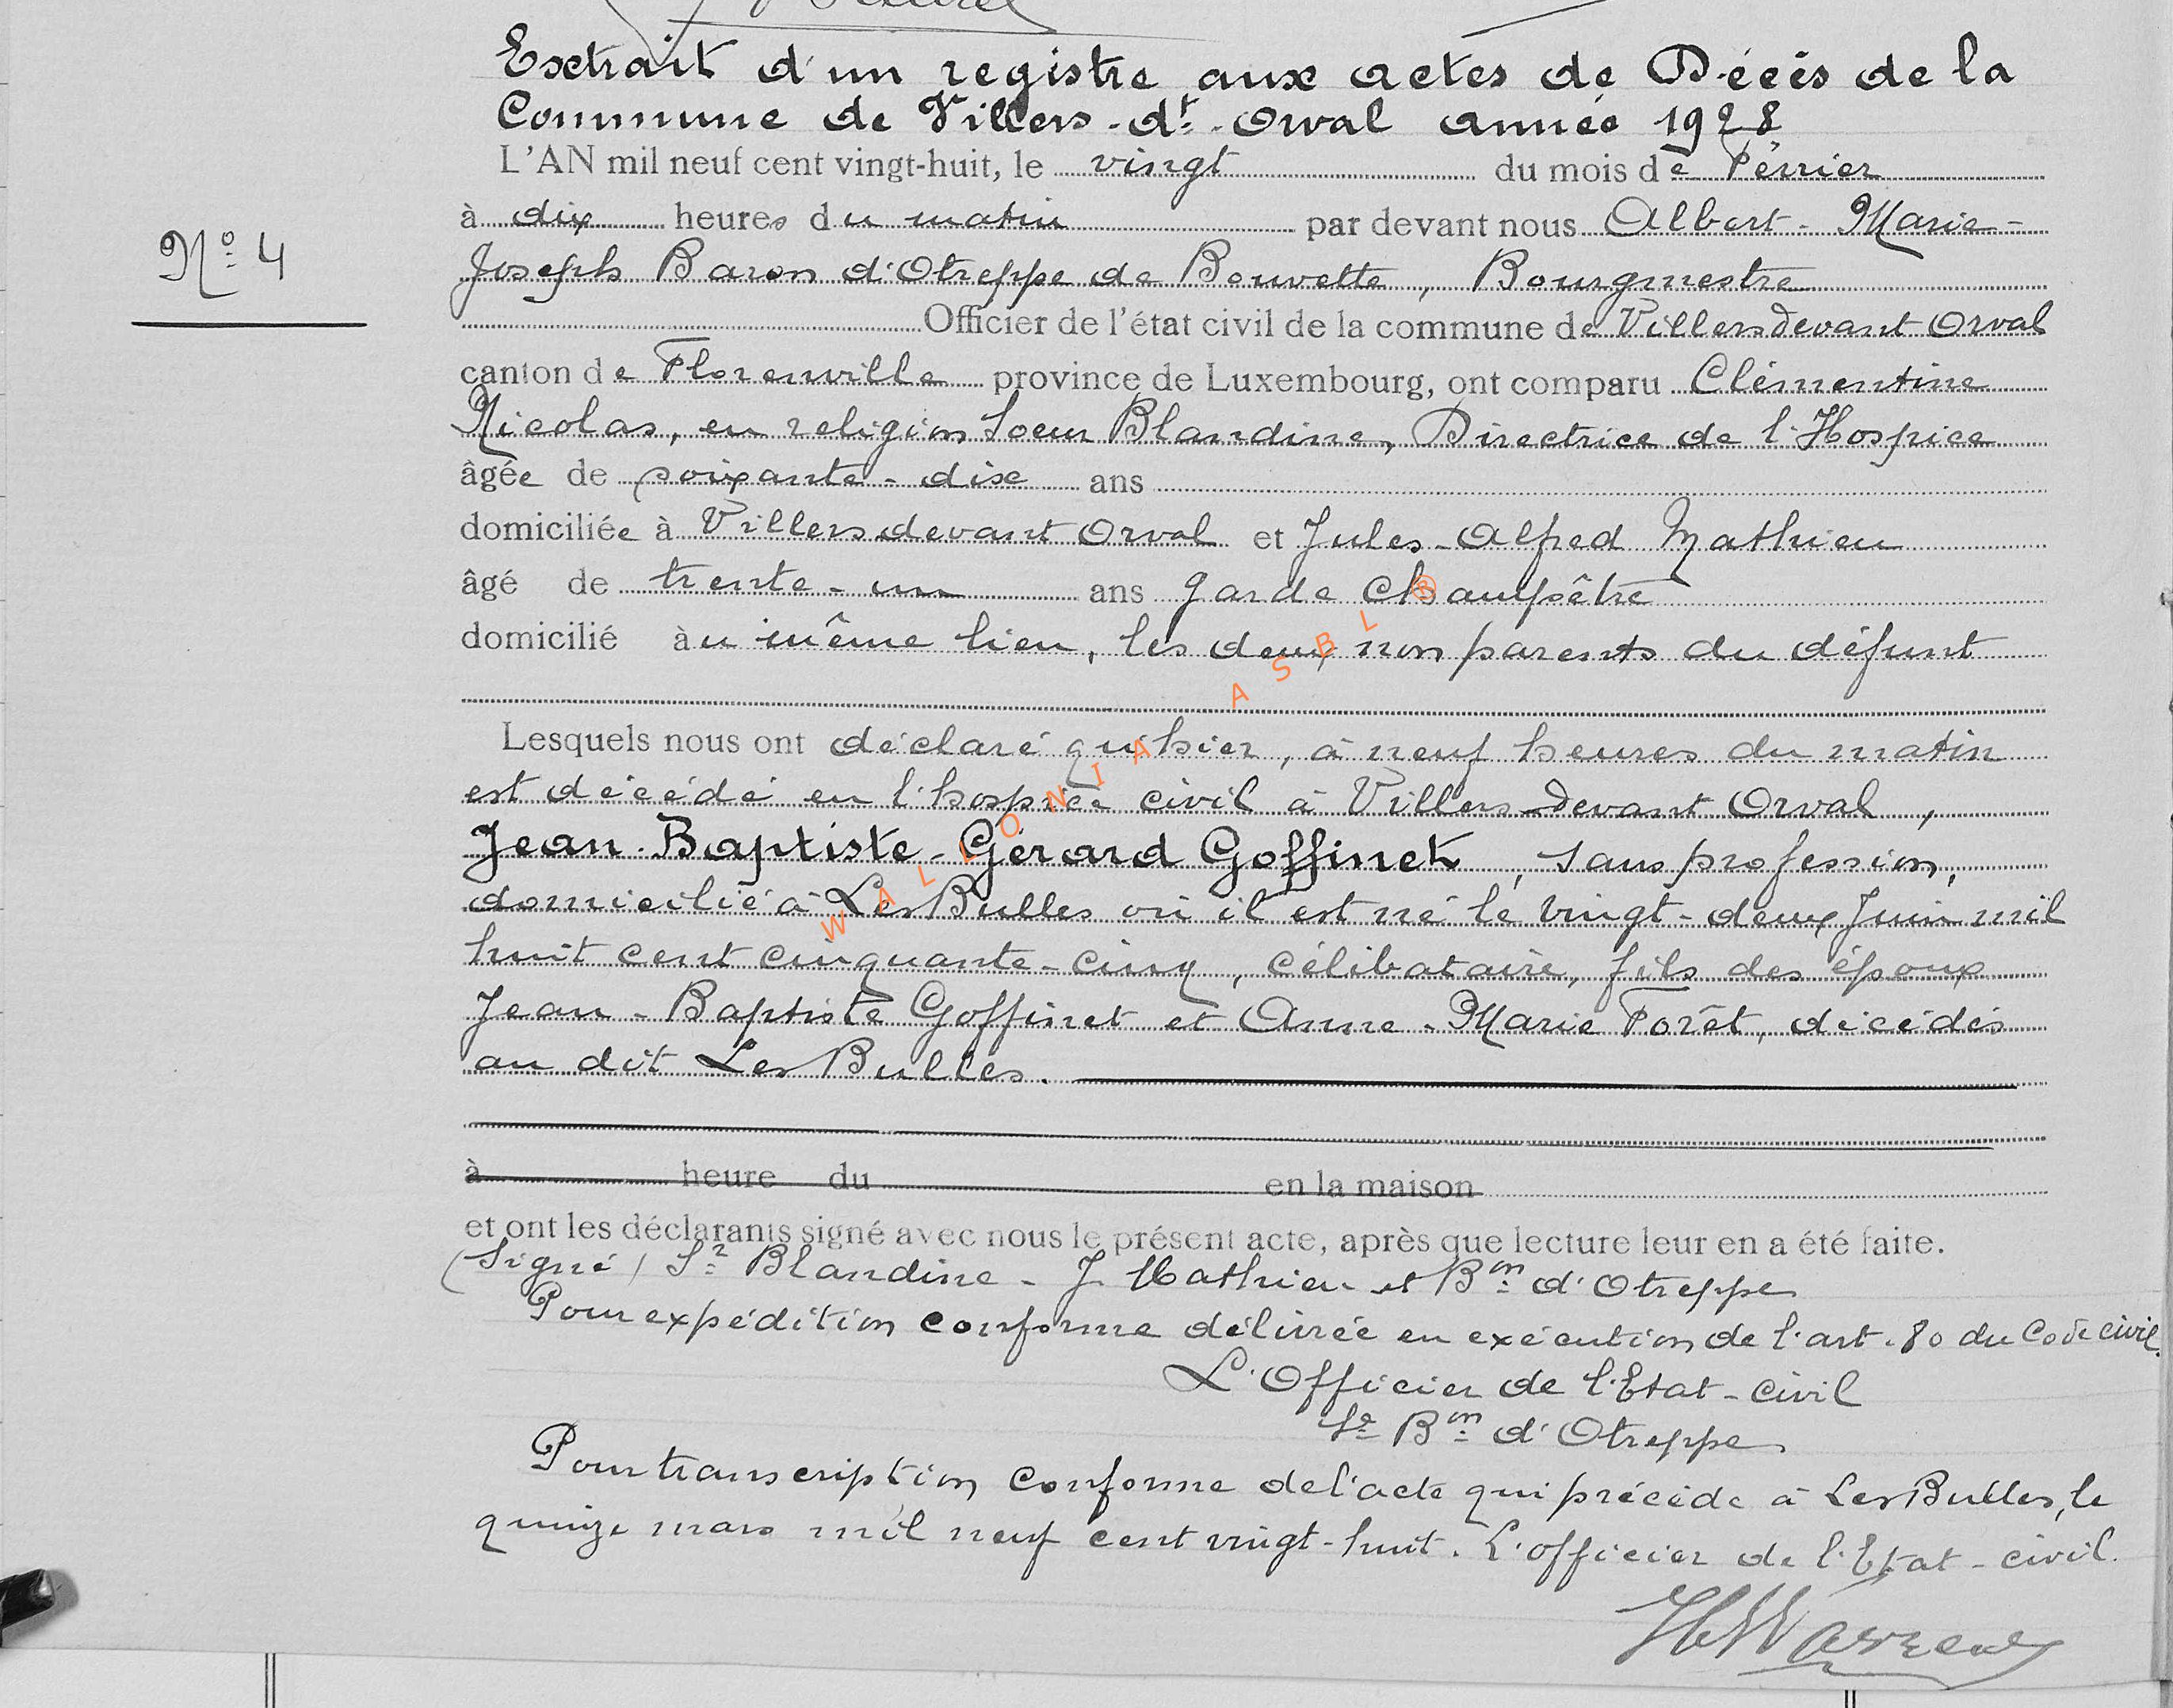 Extrait d'un registre aux actes de Décès de la
Commune de Villers-dt-Orval année 1928
L'AN mil neuf cent vingt-huit, le vingt du mois de Février
à dix heures du matin par devant nous Albert-Marie-
N° 4
Joseph Baron d'Otreppe de Bouvette, Bourgmestre
Officier de l'état civil de la commune de Villers devant Orval
canton de Florenville province de Luxembourg, ont comparu Clémentine
Nicolas, en religion Soeur Blandine, Directrice de l'Hospice
âgée de soixante-dix ans
domiciliée à Villers devant Orval et Jules-Alfred Mathieu
âgé de trente-un ans garde champêtre
domicilié au même lieu, les deux non parents du défunt
Lesquels nous ont déclaré qu'hier, à neuf heures du matin
est décédé en l'hospice civil à Villers-devant Orval,
Jean-Baptiste-Gérard Goffinet, sans profession,
domicilié à Les Bulles où il est né le vingt-deux Juin mil
huit cent cinquante-cinq, célibataire, fils des époux
Jean-Baptiste Goffinet et Anne-Marie Forêt, décédés
au dit Les Bulles.
à heure du en la maison
et ont les déclarants signé avec nous le présent acte, après que lecture leur en a été faite.
(Signé) Sr Blandine - J Mathieu et Bon d'Otreppe
Pour expédition conforme délivrée en exécution de l'art. 80 du Code civil.
L'Officier de l'Etat-civil
Sé Bon d'Otreppe
Pour transcription conforme de l'acte qui précède à Les Bulles, le
quinze mars mil neuf cent vingt-huit. L'officier de l'Etat-civil.
WALLONIA ASBL ®